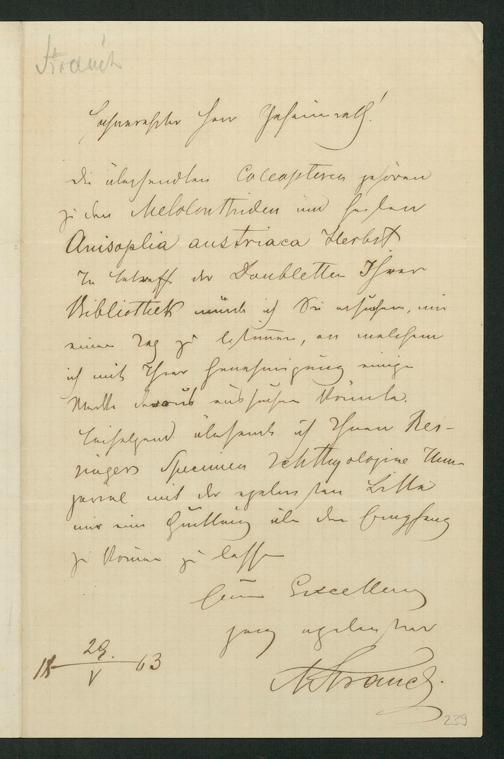 Strauch
Hochverehrter Herr Geheimrath!
Die übersendten Coleopteren gehören
zu den Melolonthiden und heißen
Anisoplia austriaca Herbst
In Betreff der Doubletten Ihrer
Bibliothek würde ich Sie ersuchen, mir
einen Tag zu bestimmen, an welchem
ich mit Ihrer Genehmigung einige
Werke daraus aussuchen könnte.
Beifolgend übersende ich Ihnen Rei-
singers Specimen Ichthyologiae Hun-
gariae mit der ergebensten Bitte
mir eine Quittung über den Empfang
zu kommen zu lassen
Eurer Excellenz
ganz ergebenster
A Strauch.
18 29./V 63
239